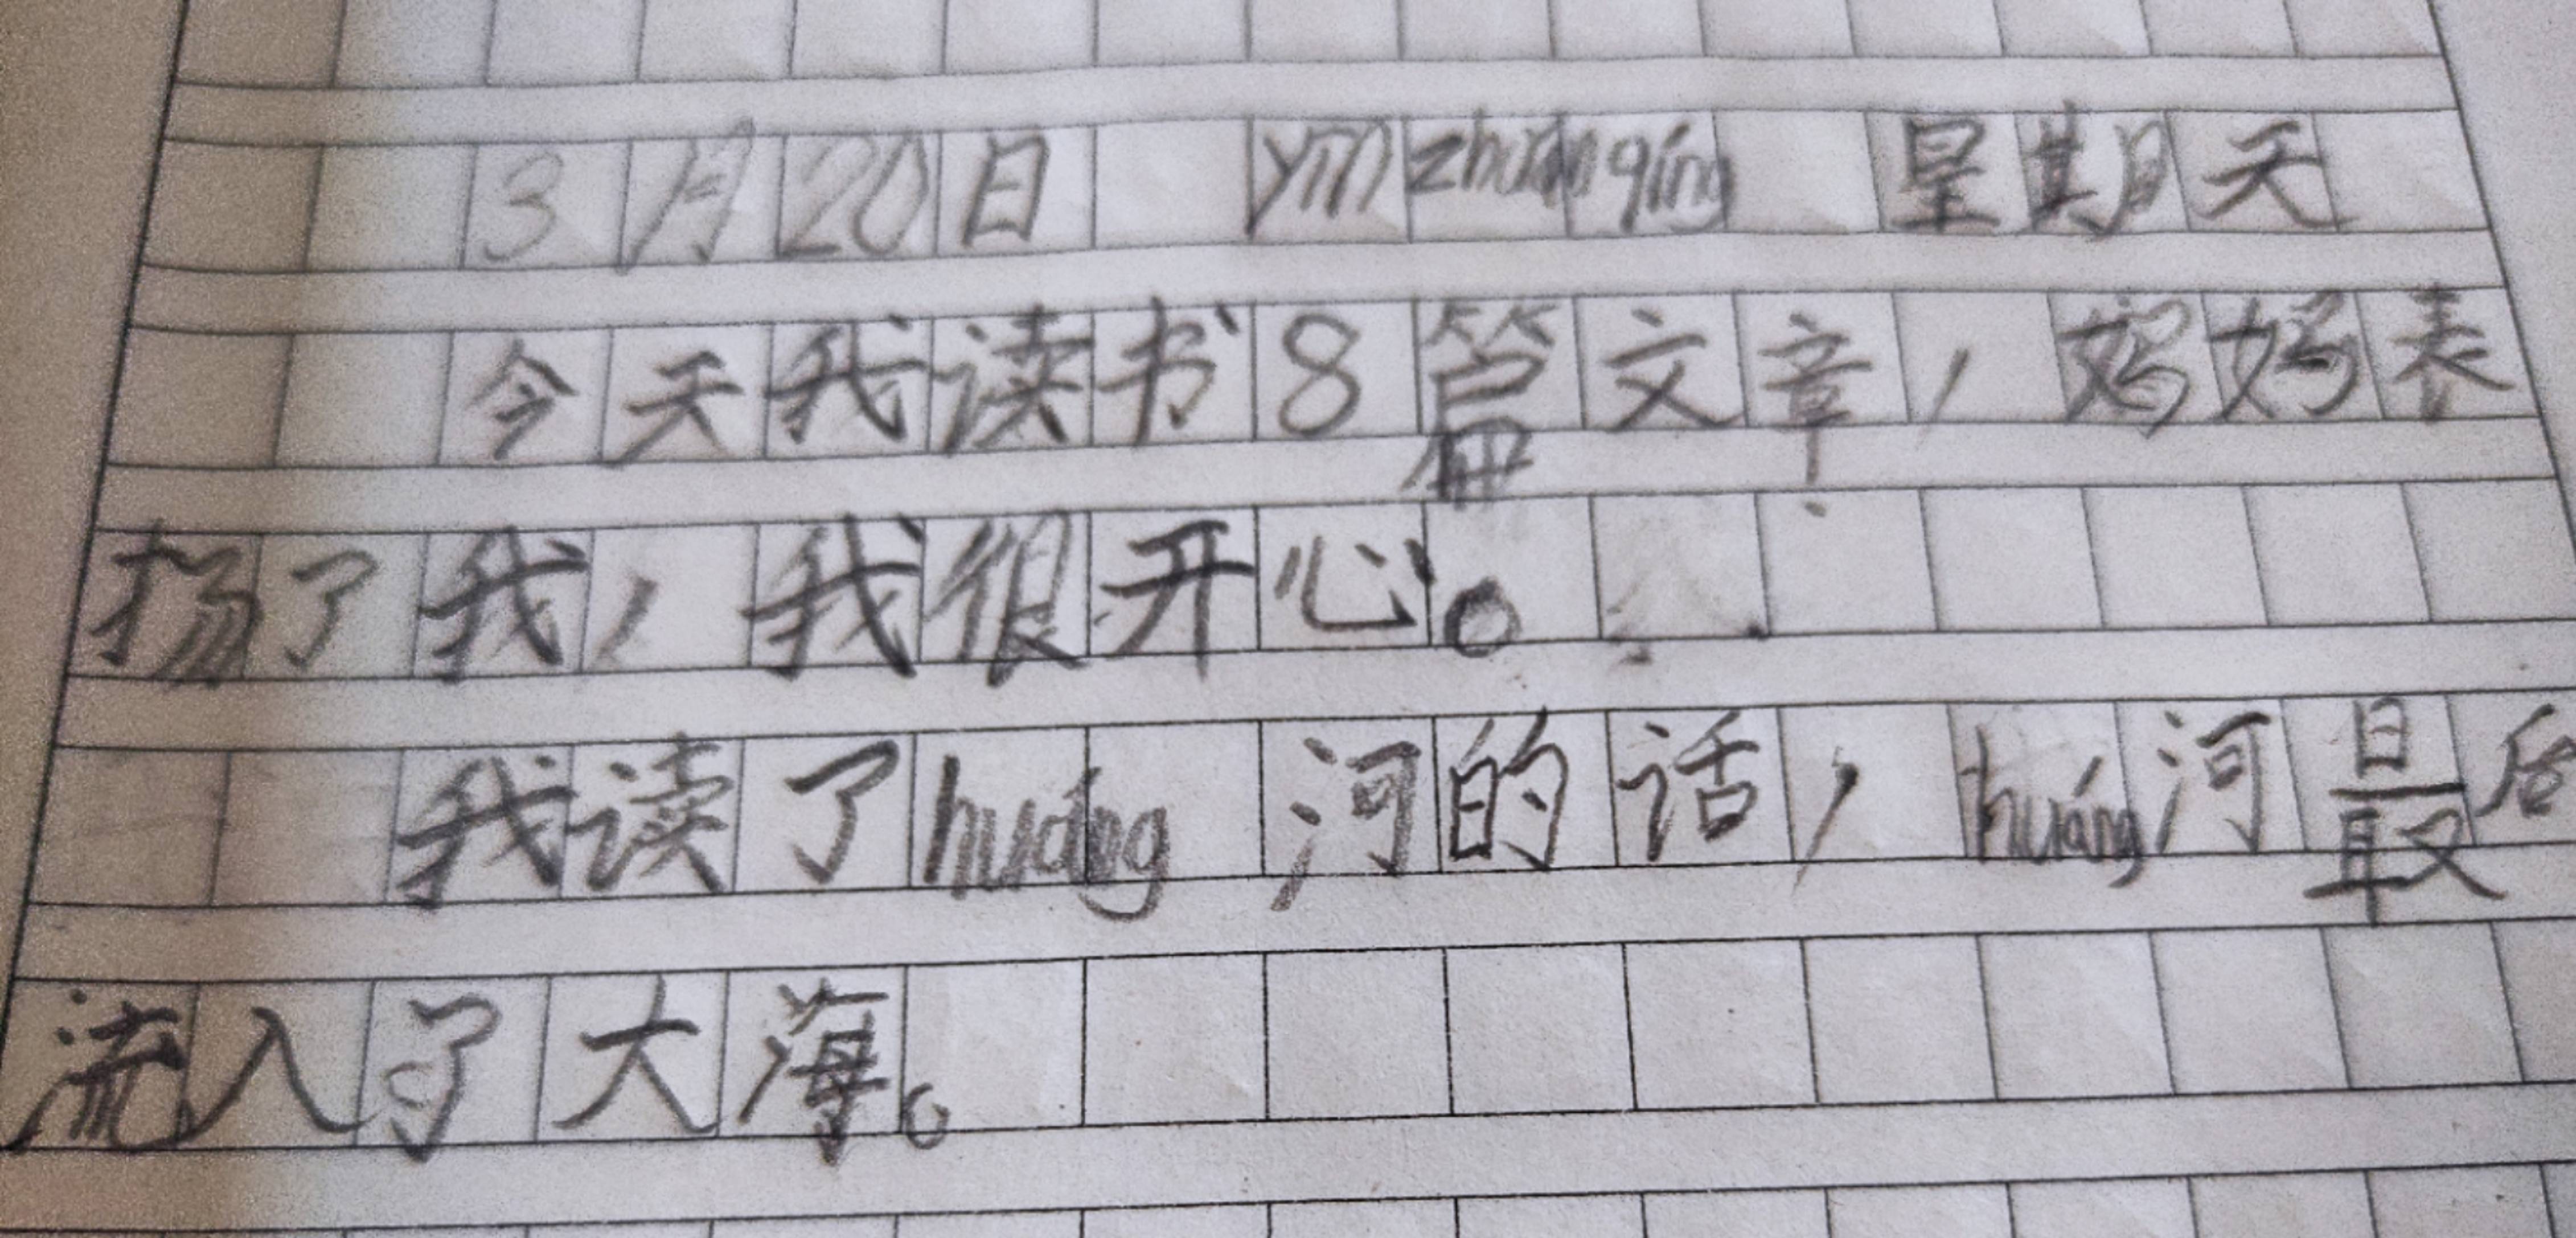 3月20日 yīn zhuǎn qíng 星期天
今天我读书8篇文章，妈妈表
扬了我，我很开心。
我读了huáng河的话，huáng河最后
流入了大海。